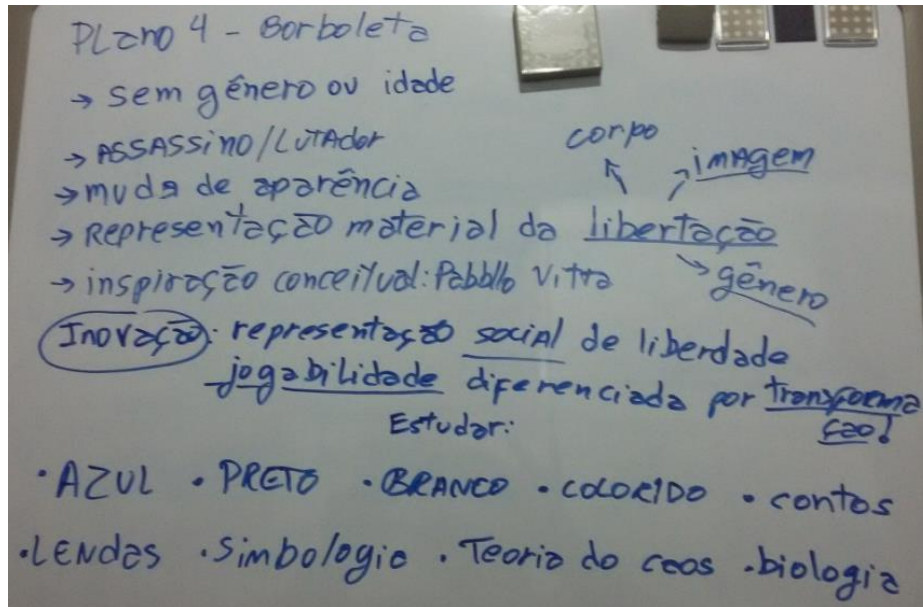 PLano 4 - Borboleta
→ Sem gênero ou idade
→ ASSASSINO/LUTADOR
→ muda de aparência
→ Representação material da libertação
corpo
imagem
gênero
→ inspiração conceitual: Pabbllo Vitta
Inovação: representação social de liberdade
jogabilidade diferenciada por transforma
ção!
Estudar:
• AZUL • PRETO • BRANCO • COLORIDO • contos
• LENDas • Simbologia • Teoria do caos • biologia